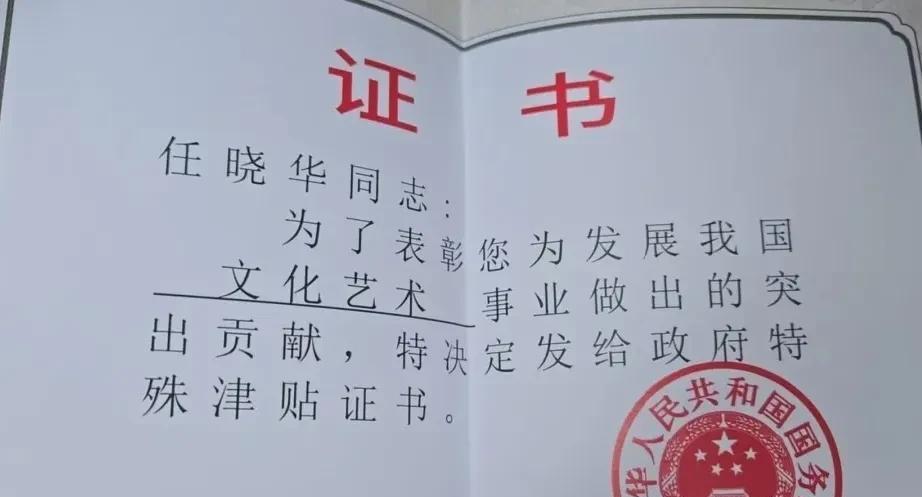 证书
任晓华同志：
为了表彰您为发展我国
文化艺术事业做出的突
出贡献，特决定发给政府特
殊津贴证书。
华人民共和国国务